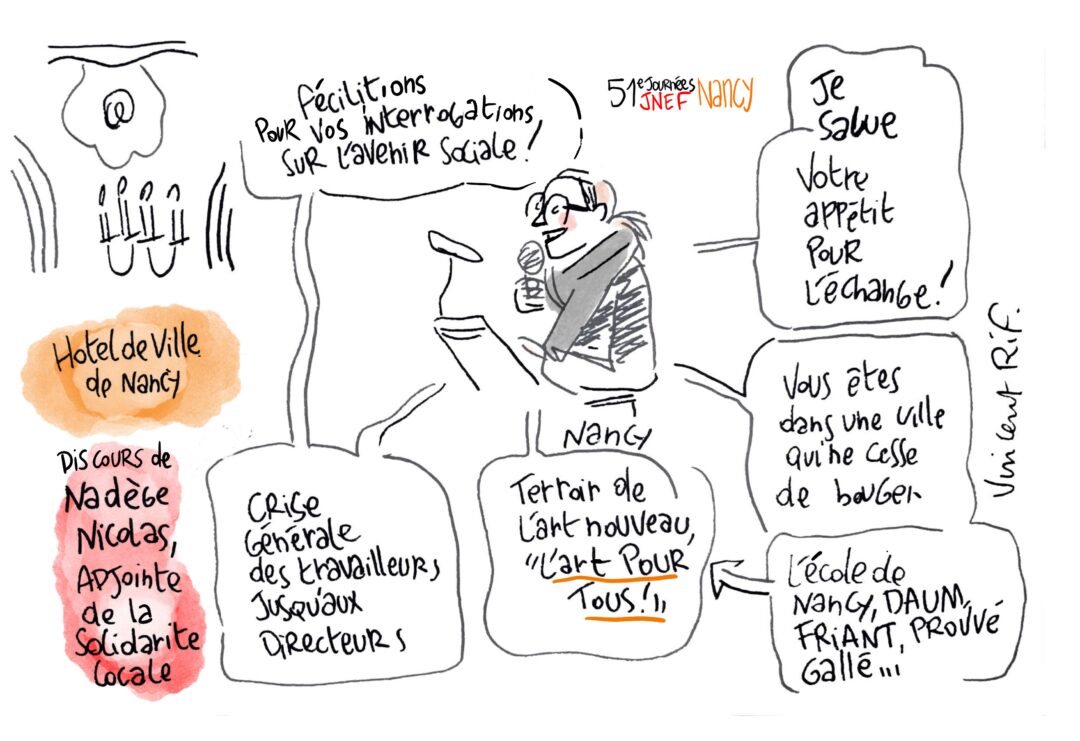 fécilitions
Pour vos interrogations,
sur l'avenir sociale !
51e Journées
JNEF Nancy
Je
salue
Votre
appétit
Pour
l'échange !
Hotel de Ville
de Nancy
Discours de
Nadège
Nicolas,
Adjointe
de la
Solidarite
locale
Crise
Générale
des travailleurs
jusqu'aux
Directeurs
Nancy
Terroir de
l'art nouveau,
"L'art Pour
Tous !"
Vous êtes
dans une ville
qui ne cesse
de bouger
L'école de
Nancy, DAUM,
FRIANT, PROUVÉ
Gallé...
Vincent Rif.